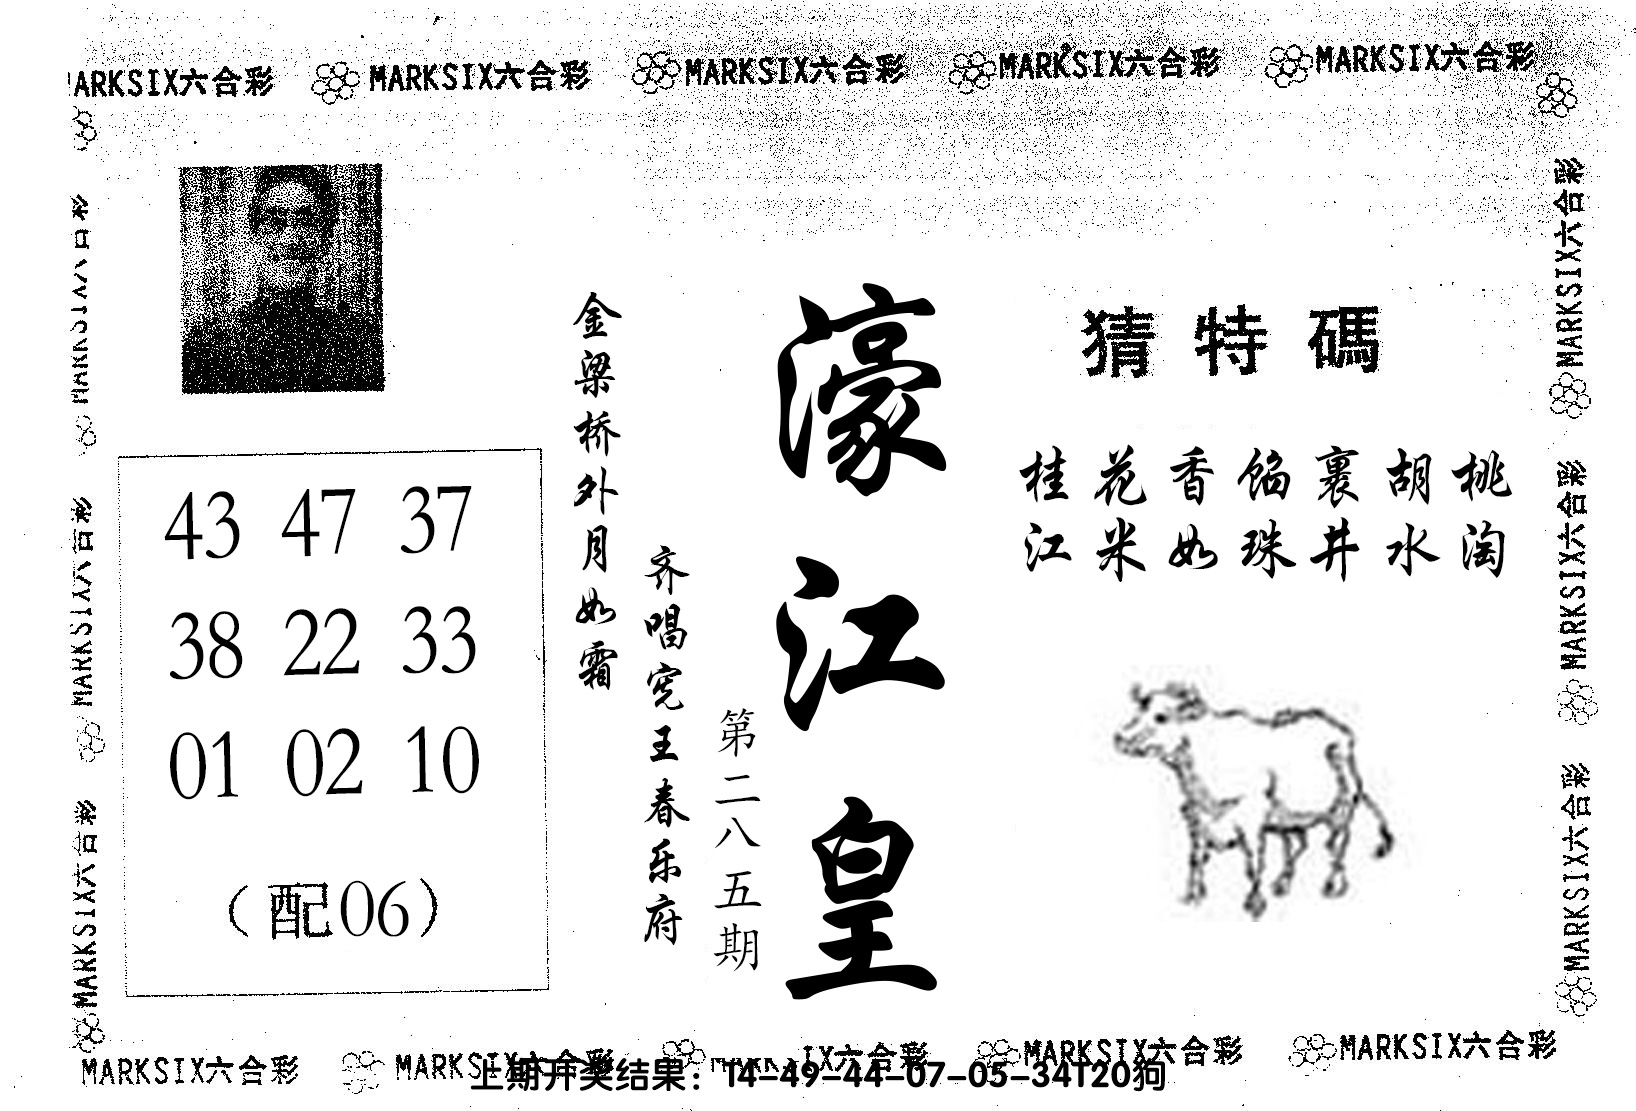 MARKSIX六合彩 MARKSIX六合彩 MARKSIX六合彩 MARKSIX六合彩
MARKSIX六合彩
MARKSIX六合彩
MARKSIX六合彩
MARKSIX六合彩
MARKSIX六合彩
MARKSIX六合彩
43 47 37
38 22 33
01 02 10
(配06)
金梁桥外月如霜
齐唱宪王春乐府
第二八五期
濠江皇
猜特碼
桂花香馅裹胡桃
江米如珠井水淘
MARKSIX六合彩 MARKSIX六合彩 MARKSIX六合彩 MARKSIX六合彩
上期开奖结果：14-49-44-07-05-34T20狗